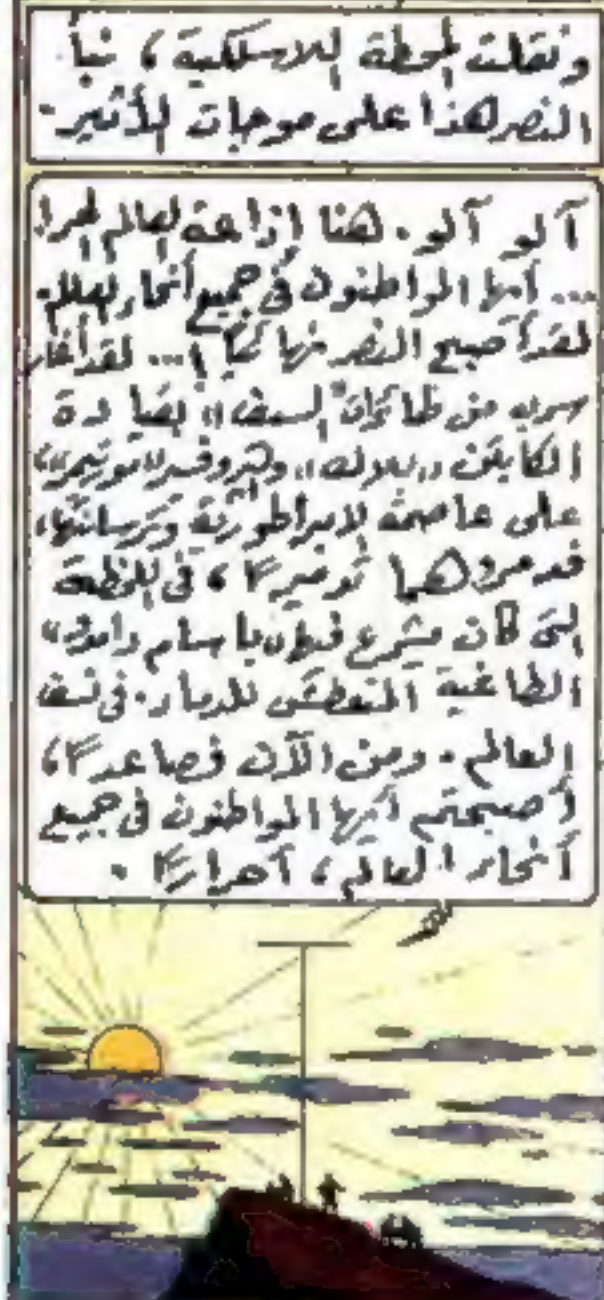 ونقلت المحطة اللاسلكية، نبأ
النصر هذا على موجات الأثير.
آلو آلو. هنا إذاعة العالم الحر!
... أيها المواطنون في جميع أنحاء العالم
لقد أصبح النصر نهائيًا!... لقد أغار
سرب من طائرات "السيف" بقيادة
الكابتن "بلاك"، والبروفسر "مورتيمر"،
على عاصمة الامبراطورية وترسانتها،
فدمروهما تدميرًا، في اللحظة
التي كان يشرع فيها
الطاغية المتعطش للدمار. في نسف
العالم. ومن الآن فصاعدًا،
أصبحتم أيها المواطنون في جميع
أنحاء العالم، أحرارًا.